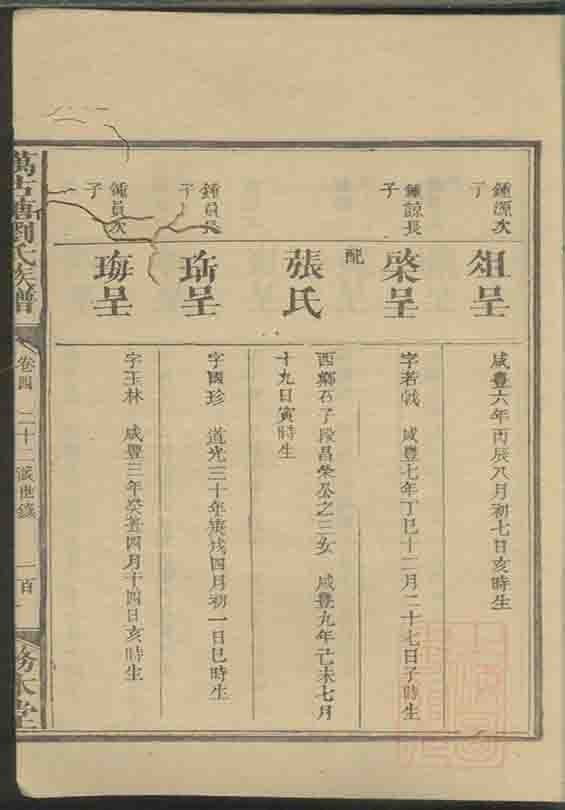 鍾源次子
俎呈
咸豐六年丙辰八月初七日亥時生
鍾諒長子
棨呈
字若戟 咸豐七年丁巳十二月二十七日子時生
配
張氏
西鄉石子段昌榮公之三女 咸豐九年己未七月
十九日寅時生
鍾員長子
呈
字國珍 道光三十年庚戌四月初一日巳時生
鍾員次子
呈
字玉林 咸豐三年癸丑四月十四日亥時生
萬古塘劉氏族譜
卷四 二十二 世錄 一百一
務本堂